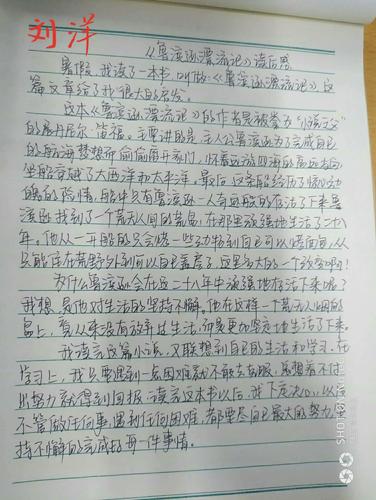 刘洋
《鲁滨逊漂流记》读后感
暑假,我读了一本书,叫做《鲁滨逊漂流记》,这
篇文章给了我很大的启发。
这本《鲁滨逊漂流记》的作者是被誉为"小说之父"
的丹尼尔·笛福。主要讲的是,主人公鲁滨逊为了完成自己
的航海梦想而偷偷离开家门,怀着远游四海的高远志向,
坐船穿越了大西洋和太平洋。最后,这条船经历了惊心动
魄的险情,船中只有鲁滨逊一人奇迹般的存活了下来。鲁
滨逊找到了一个荒无人烟的荒岛,在那里顽强地生活了二十八
年。他从一开始的只会
只能住在荒野外到可以自己盖房子,这是多大的一个改变啊!
为什么鲁滨逊会在这二十八年中顽强地存活下来呢?
我想,是他对生活的坚持不懈。他在这样一个荒无人烟的
岛上,看从来没有放弃过生活,而是更加坚定地生活了下来。
我读完这篇小说,又联想到自己的生活和学习。在
学习上,我只要遇到一点困难就不敢去克服,总想着不付
出努力就得到回报。读完这本书以后,我下定决心,以后
不管做任何事,遇到任何困难,都要尽自己最大的努力,坚
持不懈的完成好每一件事情。
SHOT ON